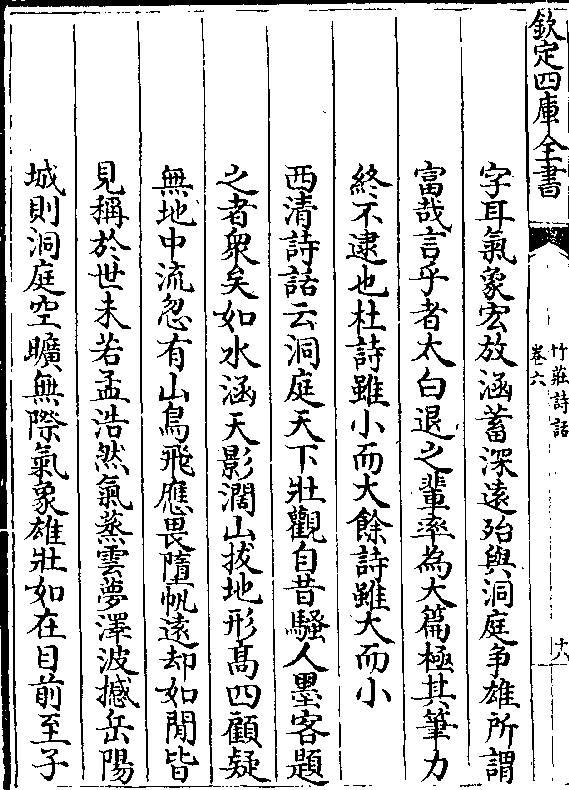 欽定四庫全書
竹莊詩話
卷六
十八
字耳氣象宏放涵蓄深遠殆與洞庭争雄所謂
富哉言乎者太白退之輩率為大篇極其筆力
終不逮也杜詩雖小而大餘詩雖大而小
西清詩話云洞庭天下壯觀自昔騷人墨客題
之者衆矣如水涵天影濶山拔地形髙四顧疑
無地中流忽有山鳥飛應畏墮帆遠却如閒皆
見稱於世未若孟浩然氣蒸雲夢澤波撼岳陽
城則洞庭空曠無際氣象雄壯如在目前至子